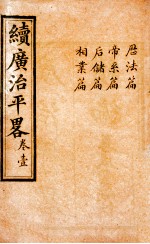 續廣治平畧 卷壹
歷法篇
帝系篇
后儲篇
相業篇